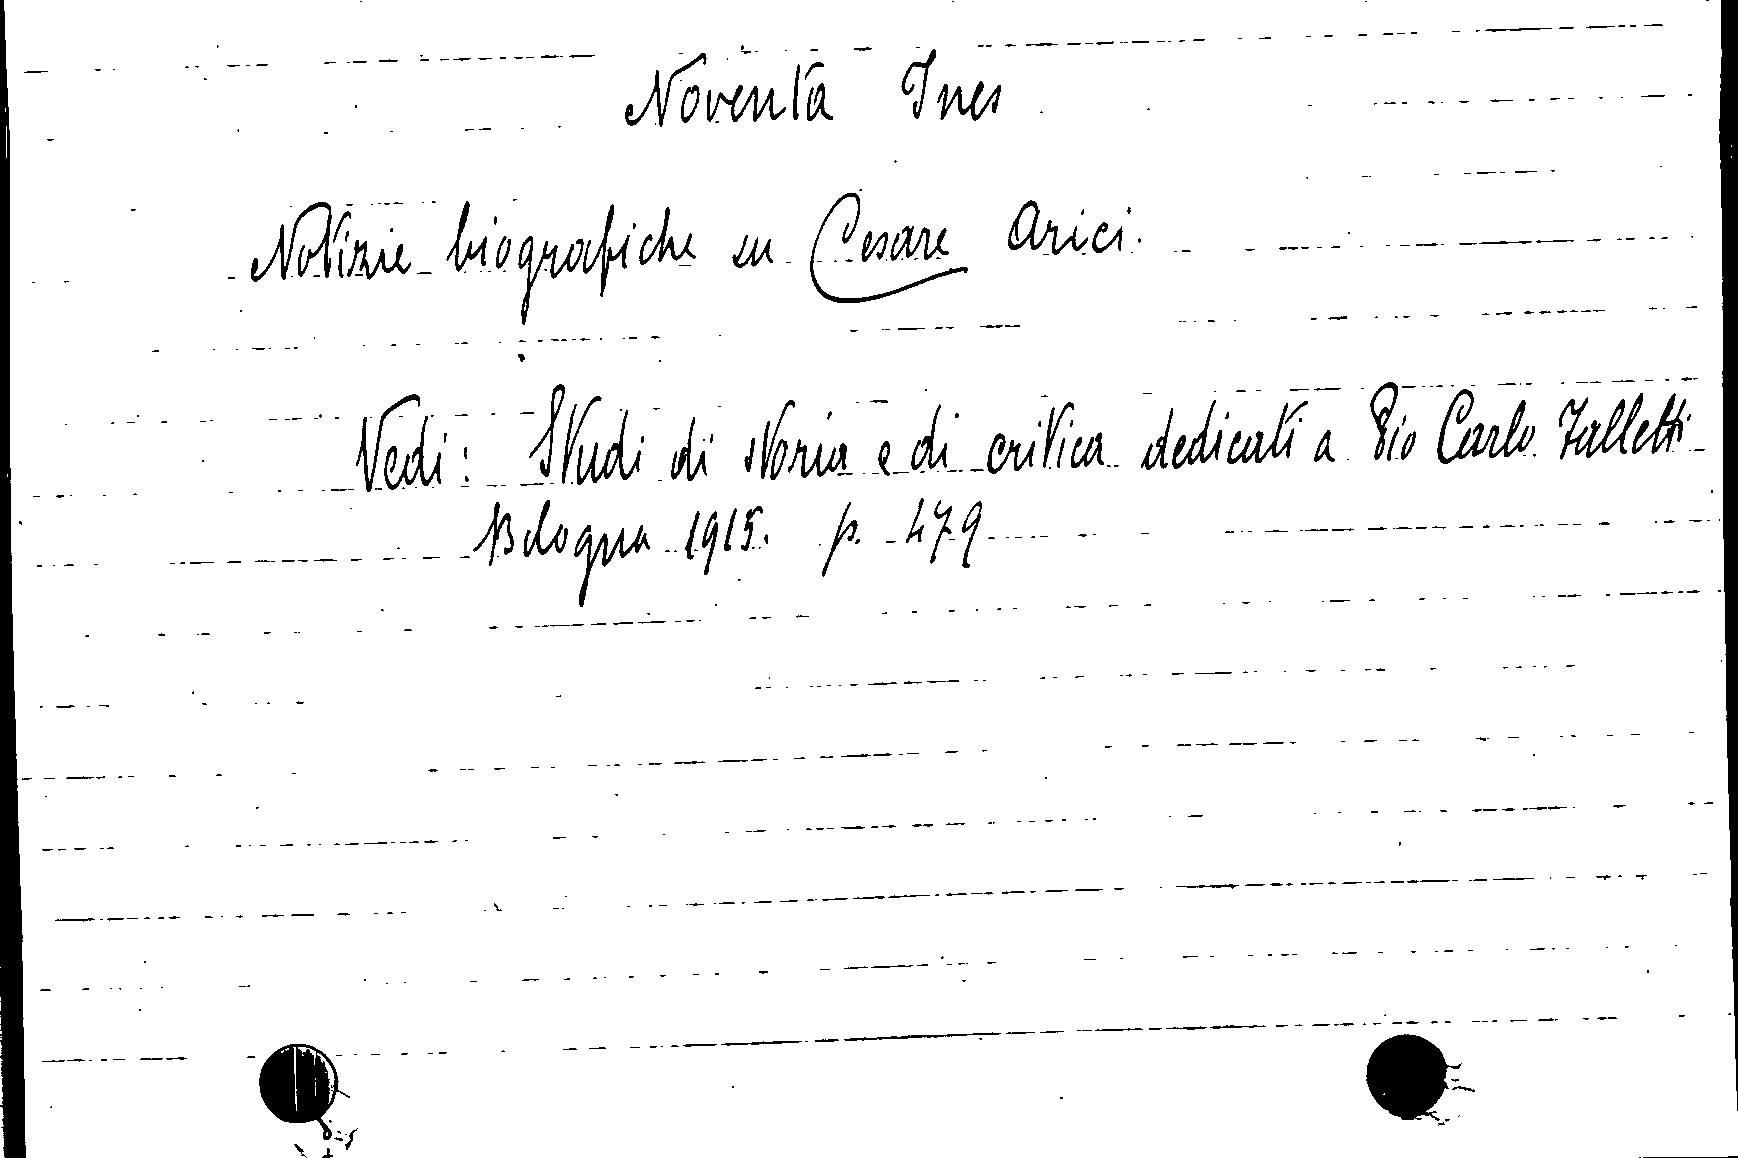 Noventa Ines
Notizie biografiche su Cesare Arici.
Vedi: Studi di storia e di critica dedicati a Pio Carlo Falletti
Bologna 1915. p. 479